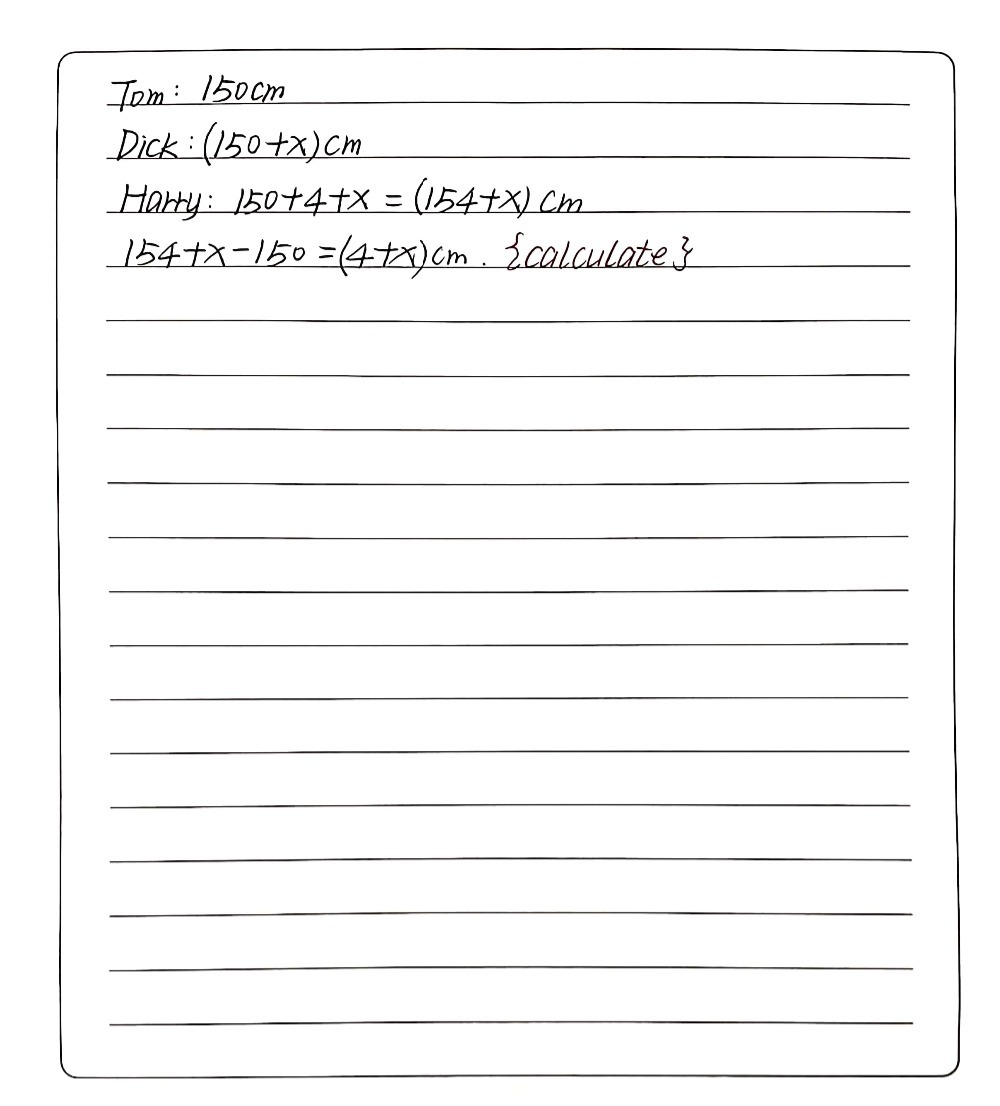 Tom: 150cm
Dick: (150+x)cm
Harry: 150+4+x = (154+x) cm
154+x-150 =(4+x)cm. {calculate}